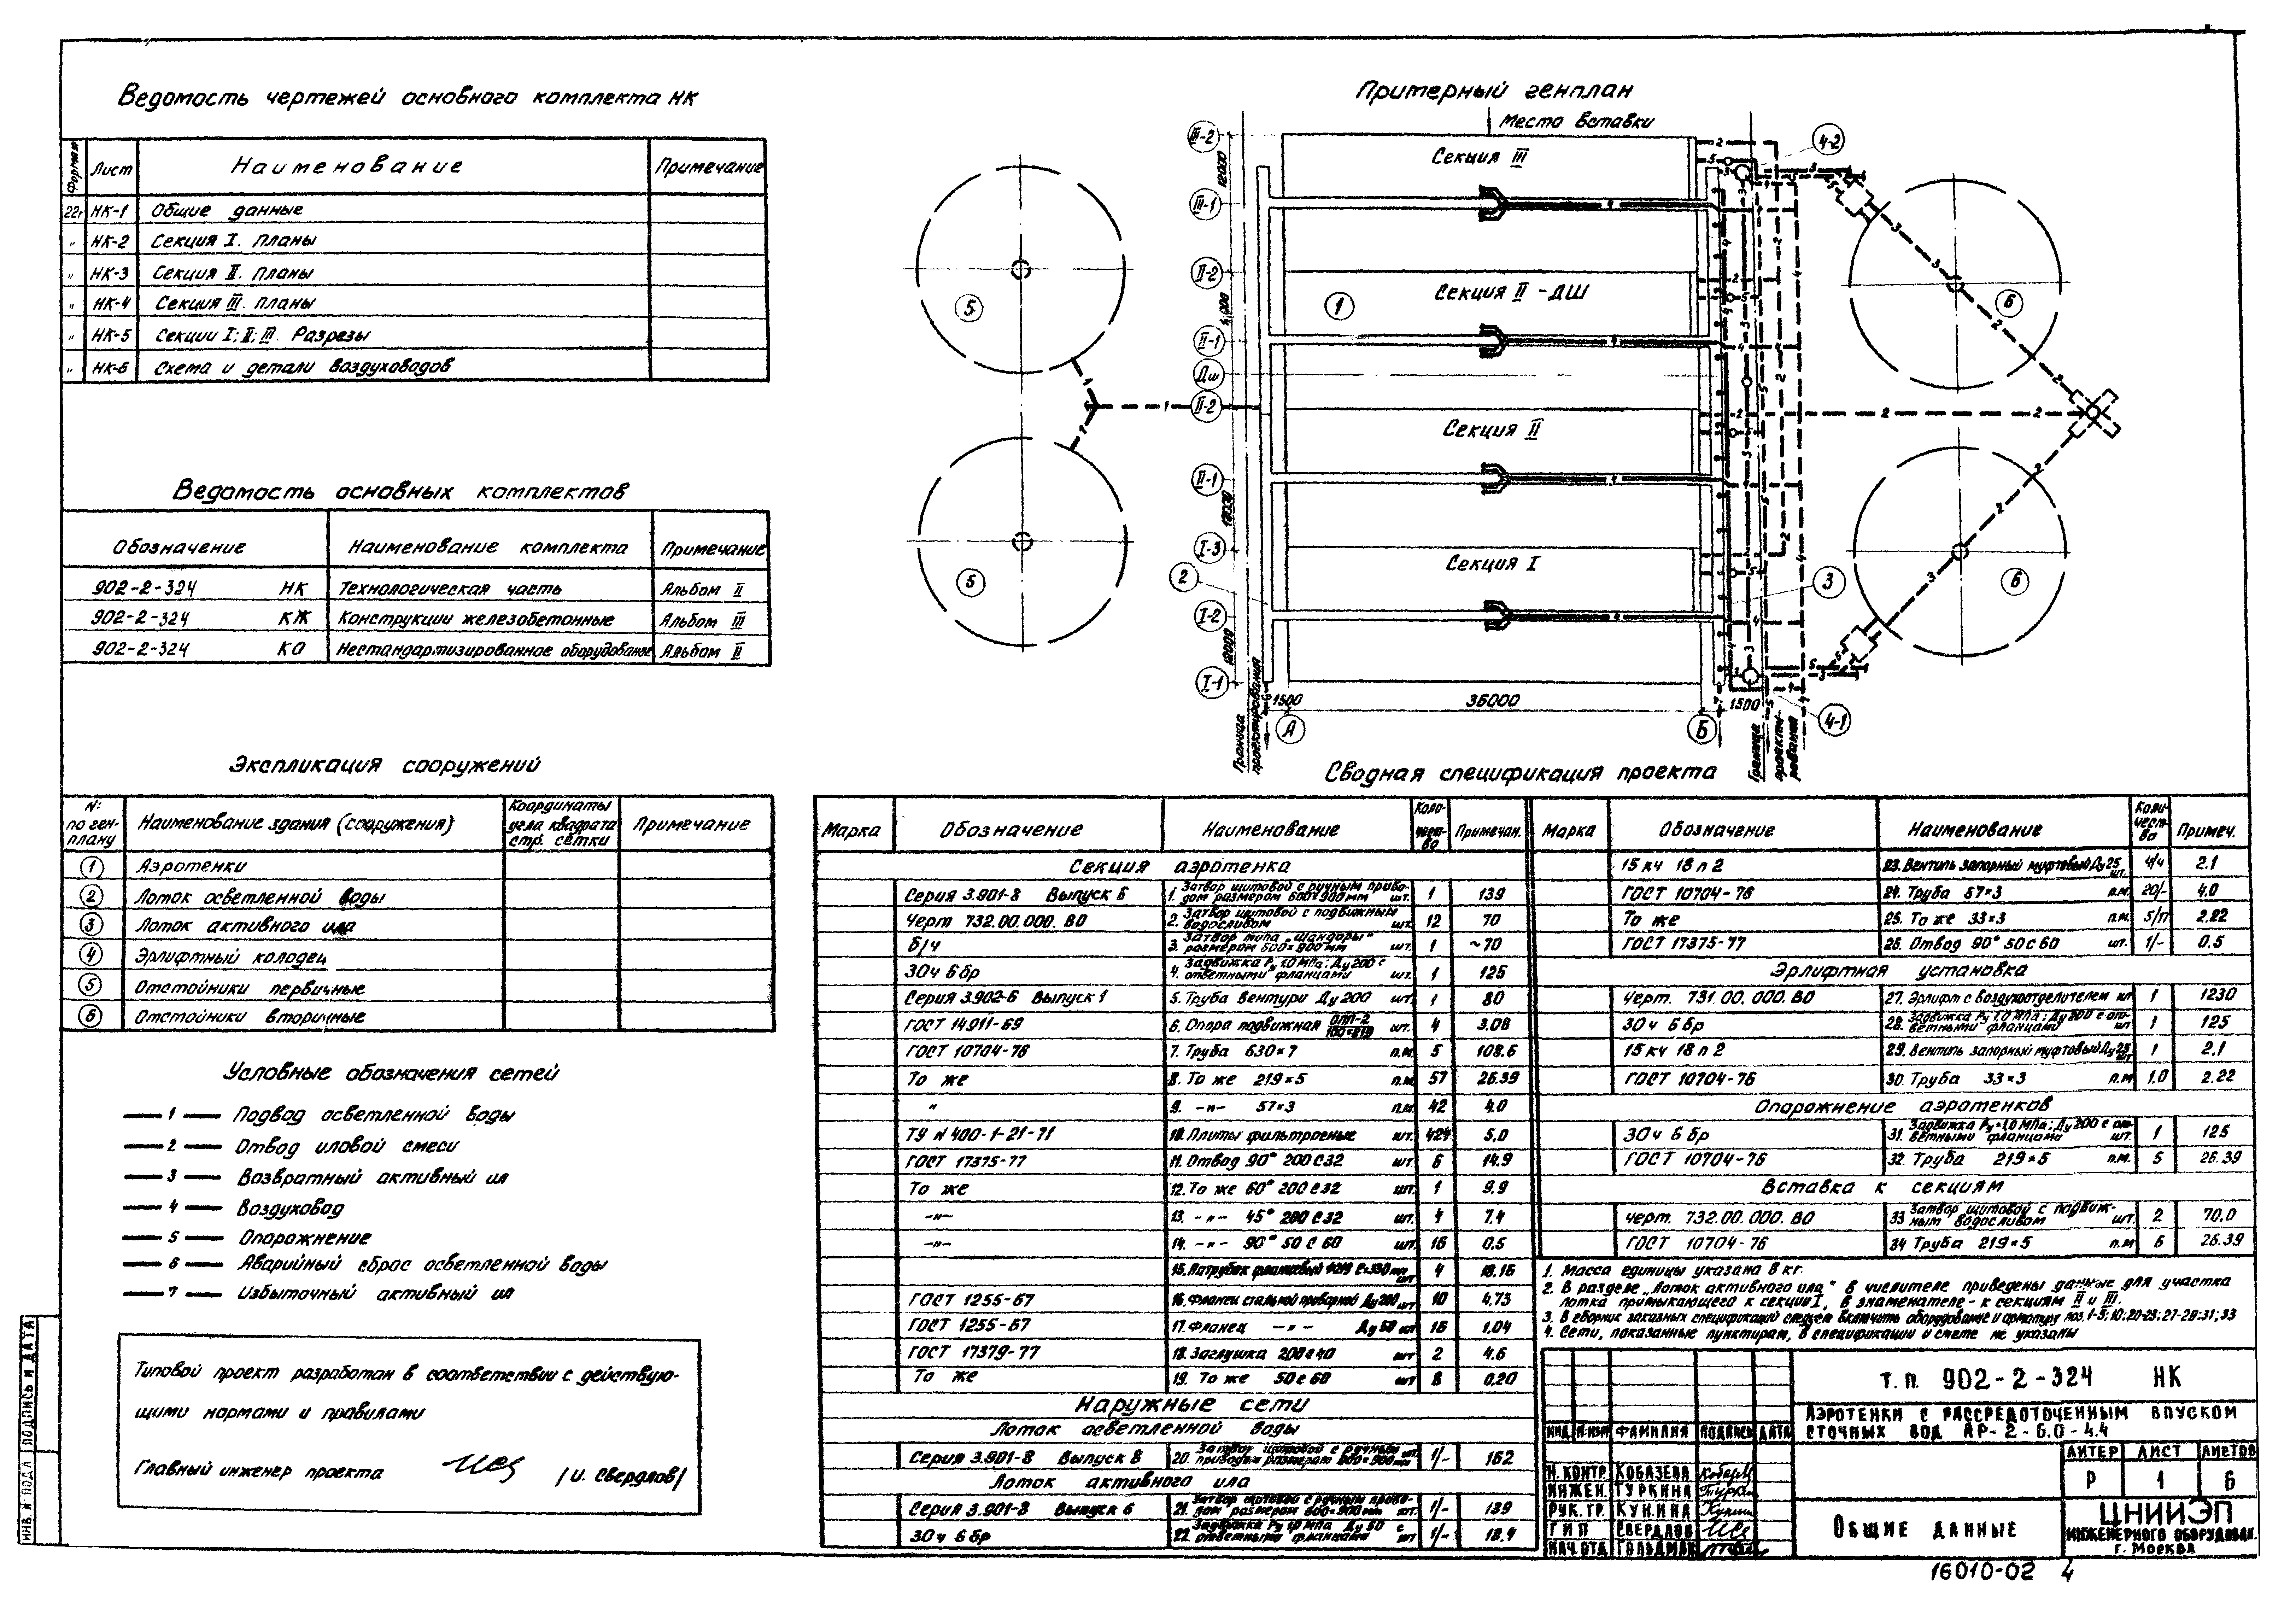 Ведомость чертежей основного комплекта НК
Формат Лист Наименование Примечание
22г НК-1 Общие данные
" НК-2 Секция I. Планы
" НК-3 Секция II. Планы
" НК-4 Секция III. Планы
" НК-5 Секции I; II; III. Разрезы
" НК-6 Схема и детали воздуховодов
Ведомость основных комплектов
Обозначение Наименование комплекта Примечание
902-2-324 НК Технологическая часть Альбом II
902-2-324 КЖ Конструкции железобетонные Альбом III
902-2-324 КО Нестандартизированное оборудование Альбом II
Экспликация сооружений
№ по генплану Наименование здания (сооружения) Координаты угла квадрата стр. сетки Примечание
1 Аэротенки
2 Лоток осветленной воды
3 Лоток активного ила
4 Эрлифтный колодец
5 Отстойники первичные
6 Отстойники вторичные
Условные обозначения сетей
1 Подвод осветленной воды
2 Отвод иловой смеси
3 Возвратный активный ил
4 Воздуховод
5 Опорожнение
6 Аварийный сброс осветленной воды
7 Избыточный активный ил
Типовой проект разработан в соответствии с действую-
щими нормами и правилами
Главный инженер проекта /И. Свердлов/
ИНВ. № ПОДЛ ПОДПИСЬ И ДАТА
Примерный генплан
Место вставки
Секция III
Секция II - ДШ
Секция II
Секция I
III-2
III-1
II-2
II-1
Дш
II-2
II-1
I-3
I-2
I-1
12000
12000
1500 36000 1500
А Б
1 2 3 4-2 4-1 5 5 6 6
Граница проектирования
Граница проекти-
рования
Сводная спецификация проекта
Марка Обозначение Наименование Коли-чест-во Примечан.
Секция аэротенка
Серия 3.901-8 Выпуск 6 1. Затвор щитовой с ручным приво-
дом размером 600×900мм шт. 1 139
Черт 732.00.000.ВО 2. Затвор щитовой с подвижным
водосливом шт. 12 70
Б/ч 3. Затвор типа „шандоры"
размером 600×900мм шт. 1 ~70
30ч 6бр 4. Задвижка Ру 1.0 МПа; Ду 200 с
ответными фланцами шт. 1 125
Серия 3.902-6 Выпуск 1 5. Труба Вентури Ду 200 шт 1 80
ГОСТ 14911-69 6. Опора подвижная ОПП-2 100×219 шт. 4 3.08
ГОСТ 10704-76 7. Труба 630×7 п.м. 5 108.6
То же 8. То же 219×5 п.м. 57 26.39
" 9. -"- 57×3 п.м. 42 4.0
ТУ № 400-1-21-71 10. Плиты фильтросные шт. 424 5.0
ГОСТ 17375-77 11. Отвод 90° 200 С32 шт. 6 14.9
То же 12. То же 60° 200 С32 шт. 1 9.9
-"- 13. -"- 45° 200 С32 шт. 4 7.4
-"- 14. -"- 90° 50 С 60 шт. 16 0.5
15. Патрубок фланцевый Ф219 ℓ=330мм шт 4 18.16
ГОСТ 1255-67 16. Фланец стальной приварной Ду 200 шт 10 4.73
ГОСТ 1255-67 17. Фланец -"- Ду 50 шт 16 1.04
ГОСТ 17379-77 18. Заглушка 200 С 40 шт 2 4.6
То же 19. То же 50 С 60 шт 8 0.20
Наружные сети
Лоток осветленной воды
Серия 3.901-8 Выпуск 8 20. Затвор щитовой с ручным
приводом размером 800×900мм шт 1/- 162
Лоток активного ила
Серия 3.901-8 Выпуск 6 21. Затвор щитовой с ручным приво-
дом размером 600×900мм шт. 1/- 139
30ч 6бр 22. Задвижка Ру 1,0 МПа Ду 50 с
ответными фланцами шт 1/- 18.4
Марка Обозначение Наименование Коли-чест-ва Примеч.
15 кч 18 п 2 23. Вентиль запорный муфтовый Ду 25 шт. 4/4 2.1
ГОСТ 10704-76 24. Труба 57×3 п.м. 20/- 4.0
То же 25. То же 33×3 п.м. 5/17 2.22
ГОСТ 17375-77 26. Отвод 90° 50 С 60 шт. 1/- 0.5
Эрлифтная установка
Черт. 731.00.000.ВО 27. Эрлифт с воздухоотделителем шт 1 1230
30ч 6бр 28. Задвижка Ру 1.0 МПа; Ду 200 с от-
ветными фланцами шт 1 125
15 кч 18 п 2 29. Вентиль запорный муфтовый Ду 25 шт 1 2.1
ГОСТ 10704-76 30. Труба 33×3 п.м 1.0 2.22
Опорожнение аэротенков
30ч 6бр 31. Задвижка Ру=1.0 МПа; Ду 200 с от-
ветными фланцами шт. 1 125
ГОСТ 10704-76 32. Труба 219×5 п.м. 5 26.39
Вставка к секциям
черт. 732.00.000.ВО 33 Затвор щитовой с подвиж-
ным водосливом шт. 2 70,0
ГОСТ 10704-76 34 Труба 219×5 п.м 6 26.39
1. Масса единицы указана в кг.
2. В разделе „Лоток активного ила" в числителе приведены данные для участка
лотка примыкающего к секции I, в знаменателе - к секциям II и III.
3. В сборник заказных спецификаций следует включить оборудование и арматуру поз. 1-5; 10; 20-23; 27-29; 31; 33
4. Сети, показанные пунктиром, в спецификации и смете не указаны
Т.П. 902-2-324 НК
АЭРОТЕНКИ С РАССРЕДОТОЧЕННЫМ ВПУСКОМ
СТОЧНЫХ ВОД АР-2-6.0-4.4
ФАМИЛИЯ ПОДПИСЬ ДАТА
Н. КОНТР. КОБАЗЕВА
ИНЖЕН. ТУРКИНА
РУК. ГР. КУНИНА
ГИП СВЕРДЛОВ
НАЧ. ОТД ГОЛЬДМАН
ЛИТЕР ЛИСТ ЛИСТОВ
Р 1 6
ОБЩИЕ ДАННЫЕ
ЦНИИЭП
ИНЖЕНЕРНОГО ОБОРУДОВАН.
Г. МОСКВА
16010-02 4